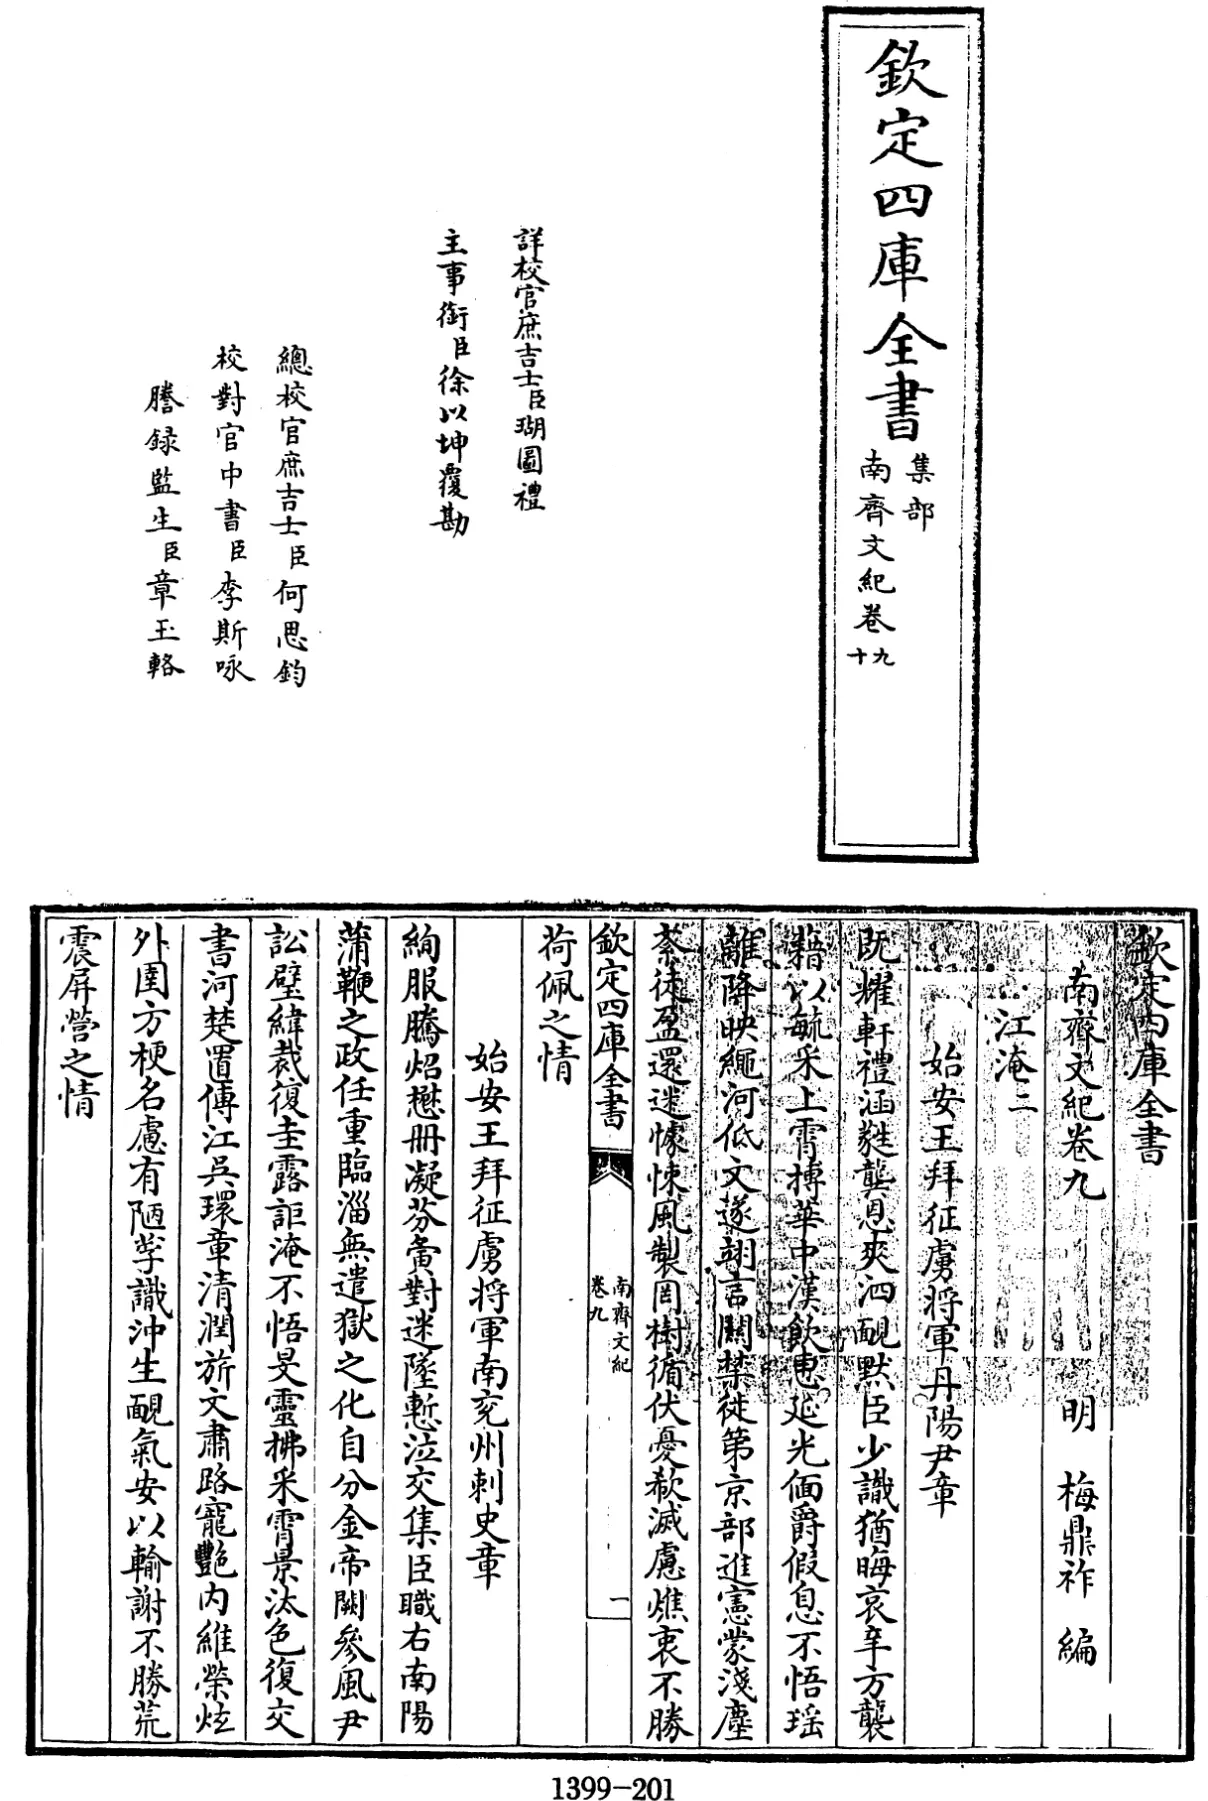 欽定四庫全書
集部
南齊文紀卷九
十
詳校官庶吉士臣瑚圖禮
主事銜臣徐以坤覆勘
總校官庶吉士臣何思鈞
校對官中書臣李斯咏
謄録監生臣章玉輅
欽定四庫全書
南齊文紀卷九
明 梅鼎祚 編
江淹二
始安王拜征虜将軍丹陽尹章
既耀軒禮涵㲯龔恩夾泗靦黙臣少識猶晦哀辛方襲
籍以毓采上霄摶華中漢飲惠延光偭爵假息不悟瑶
離降映繩河低文遂翊言闗禁徙第京部進憲蒙淺塵
荼徒盈還迷懅悚風製罔樹循伏憂欷滅慮燋衷不勝
荷佩之情
始安王拜征虜将軍南兖州刺史章
絢服騰焰懋册凝芬夤對迷墜慙泣交集臣職右南陽
蒲鞭之政任重臨淄無遣獄之化自分金帝闕參風尹
訟璧緯裁復圭露詎淹不悟旻靈拂采霄景汰色復交
書河楚置傳江吳環章清潤旂文肅路寵艷内維榮炫
外圉方梗名慮有陋學識沖生靦氣安以輸謝不勝荒
震屏營之情
欽定四庫全書
南齊文紀
卷九
一
1399-201